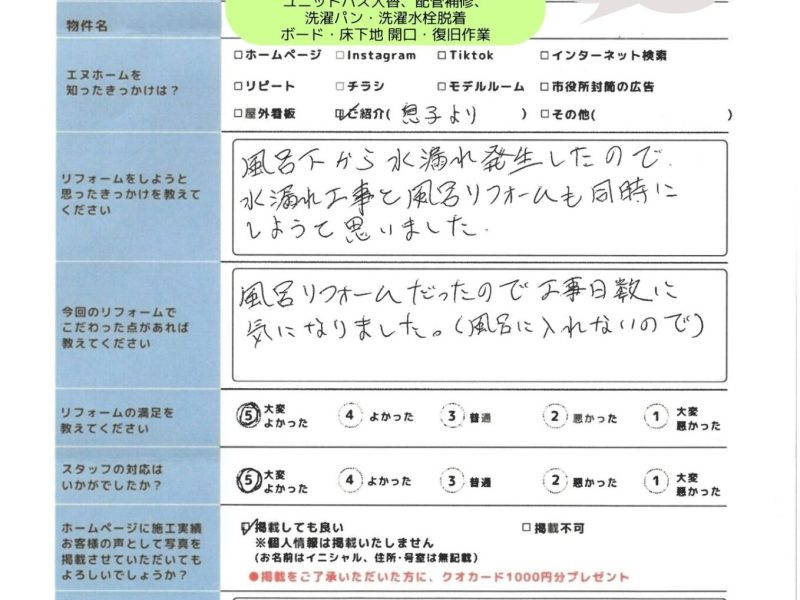 ユニットバス入替、配管補修、
洗濯パン・洗濯水栓脱着
ボード・床下地 開口・復旧作業
物件名
エヌホームを
知ったきっかけは？
□ホームページ □Instagram □Tiktok □インターネット検索
□リピート □チラシ □モデルルーム □市役所封筒の広告
□屋外看板 ☑ご紹介( 息子より ) □その他( )
リフォームをしようと
思ったきっかけを教えて
ください
風呂下から水漏れ発生したので、
水漏れ工事と風呂リフォームも同時に
しようと思いました.
今回のリフォームで
こだわった点があれば
教えてください
風呂リフォームだったので工事日数に
気になりました。(風呂に入れないので)
リフォームの満足を
教えてください
5 大変よかった 4 よかった 3 普通 2 悪かった 1 大変悪かった
スタッフの対応は
いかがでしたか？
5 大変よかった 4 よかった 3 普通 2 悪かった 1 大変悪かった
ホームページに施工実績
お客様の声として写真を
掲載させていただいても
よろしいでしょうか？
☑掲載しても良い □掲載不可
※個人情報は掲載いたしません
(お名前はイニシャル、住所・号室は無記載)
●掲載をご了承いただいた方に、クオカード1000円分プレゼント